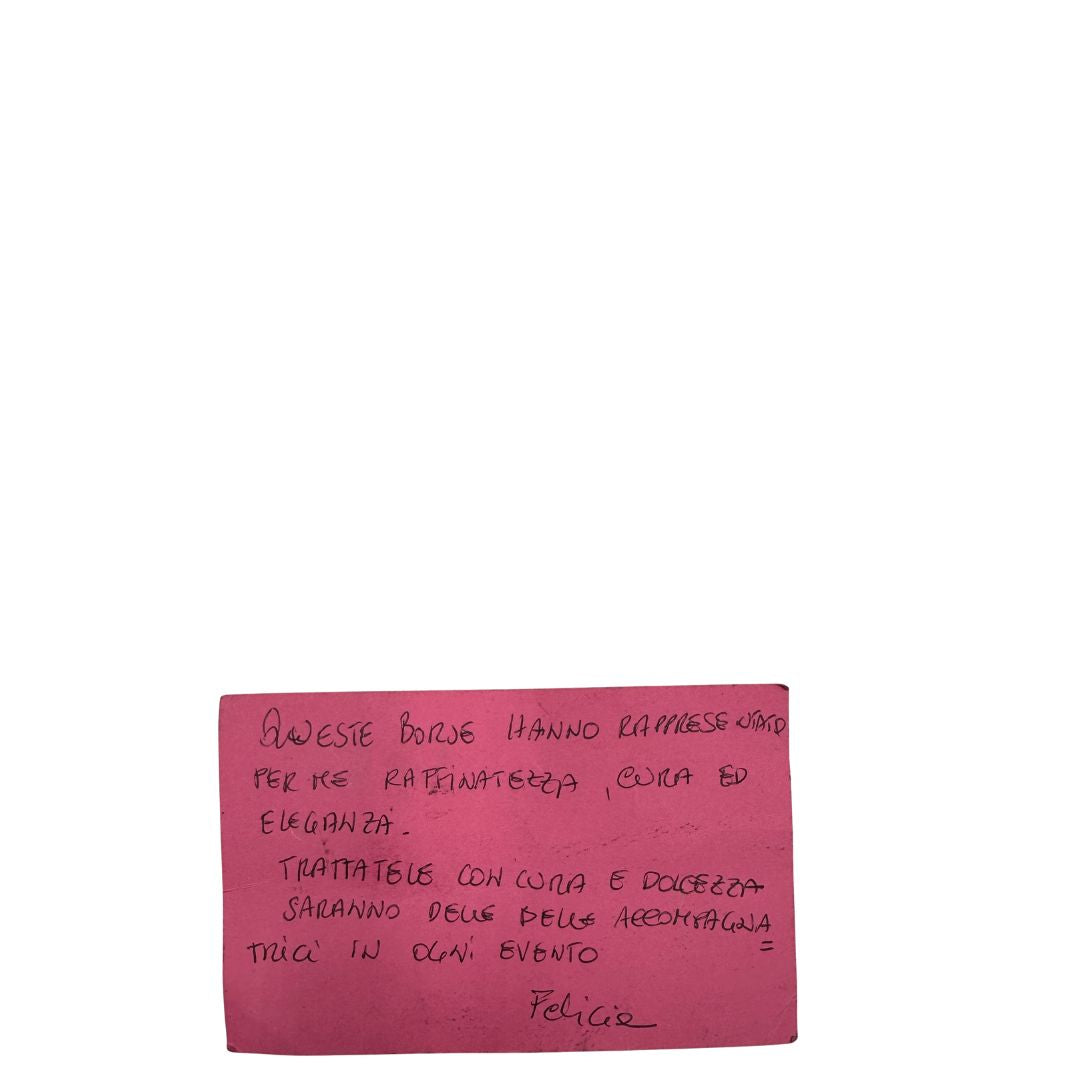 QUESTE BORSE HANNO RAPPRESENTATO
PER ME RAFFINATEZZA, CURA ED
ELEGANZA.
TRATTATELE CON CURA E DOLCEZZA
SARANNO DELLE BELLE ACCOMPAGNA=
TRICI IN OGNI EVENTO
Felicia